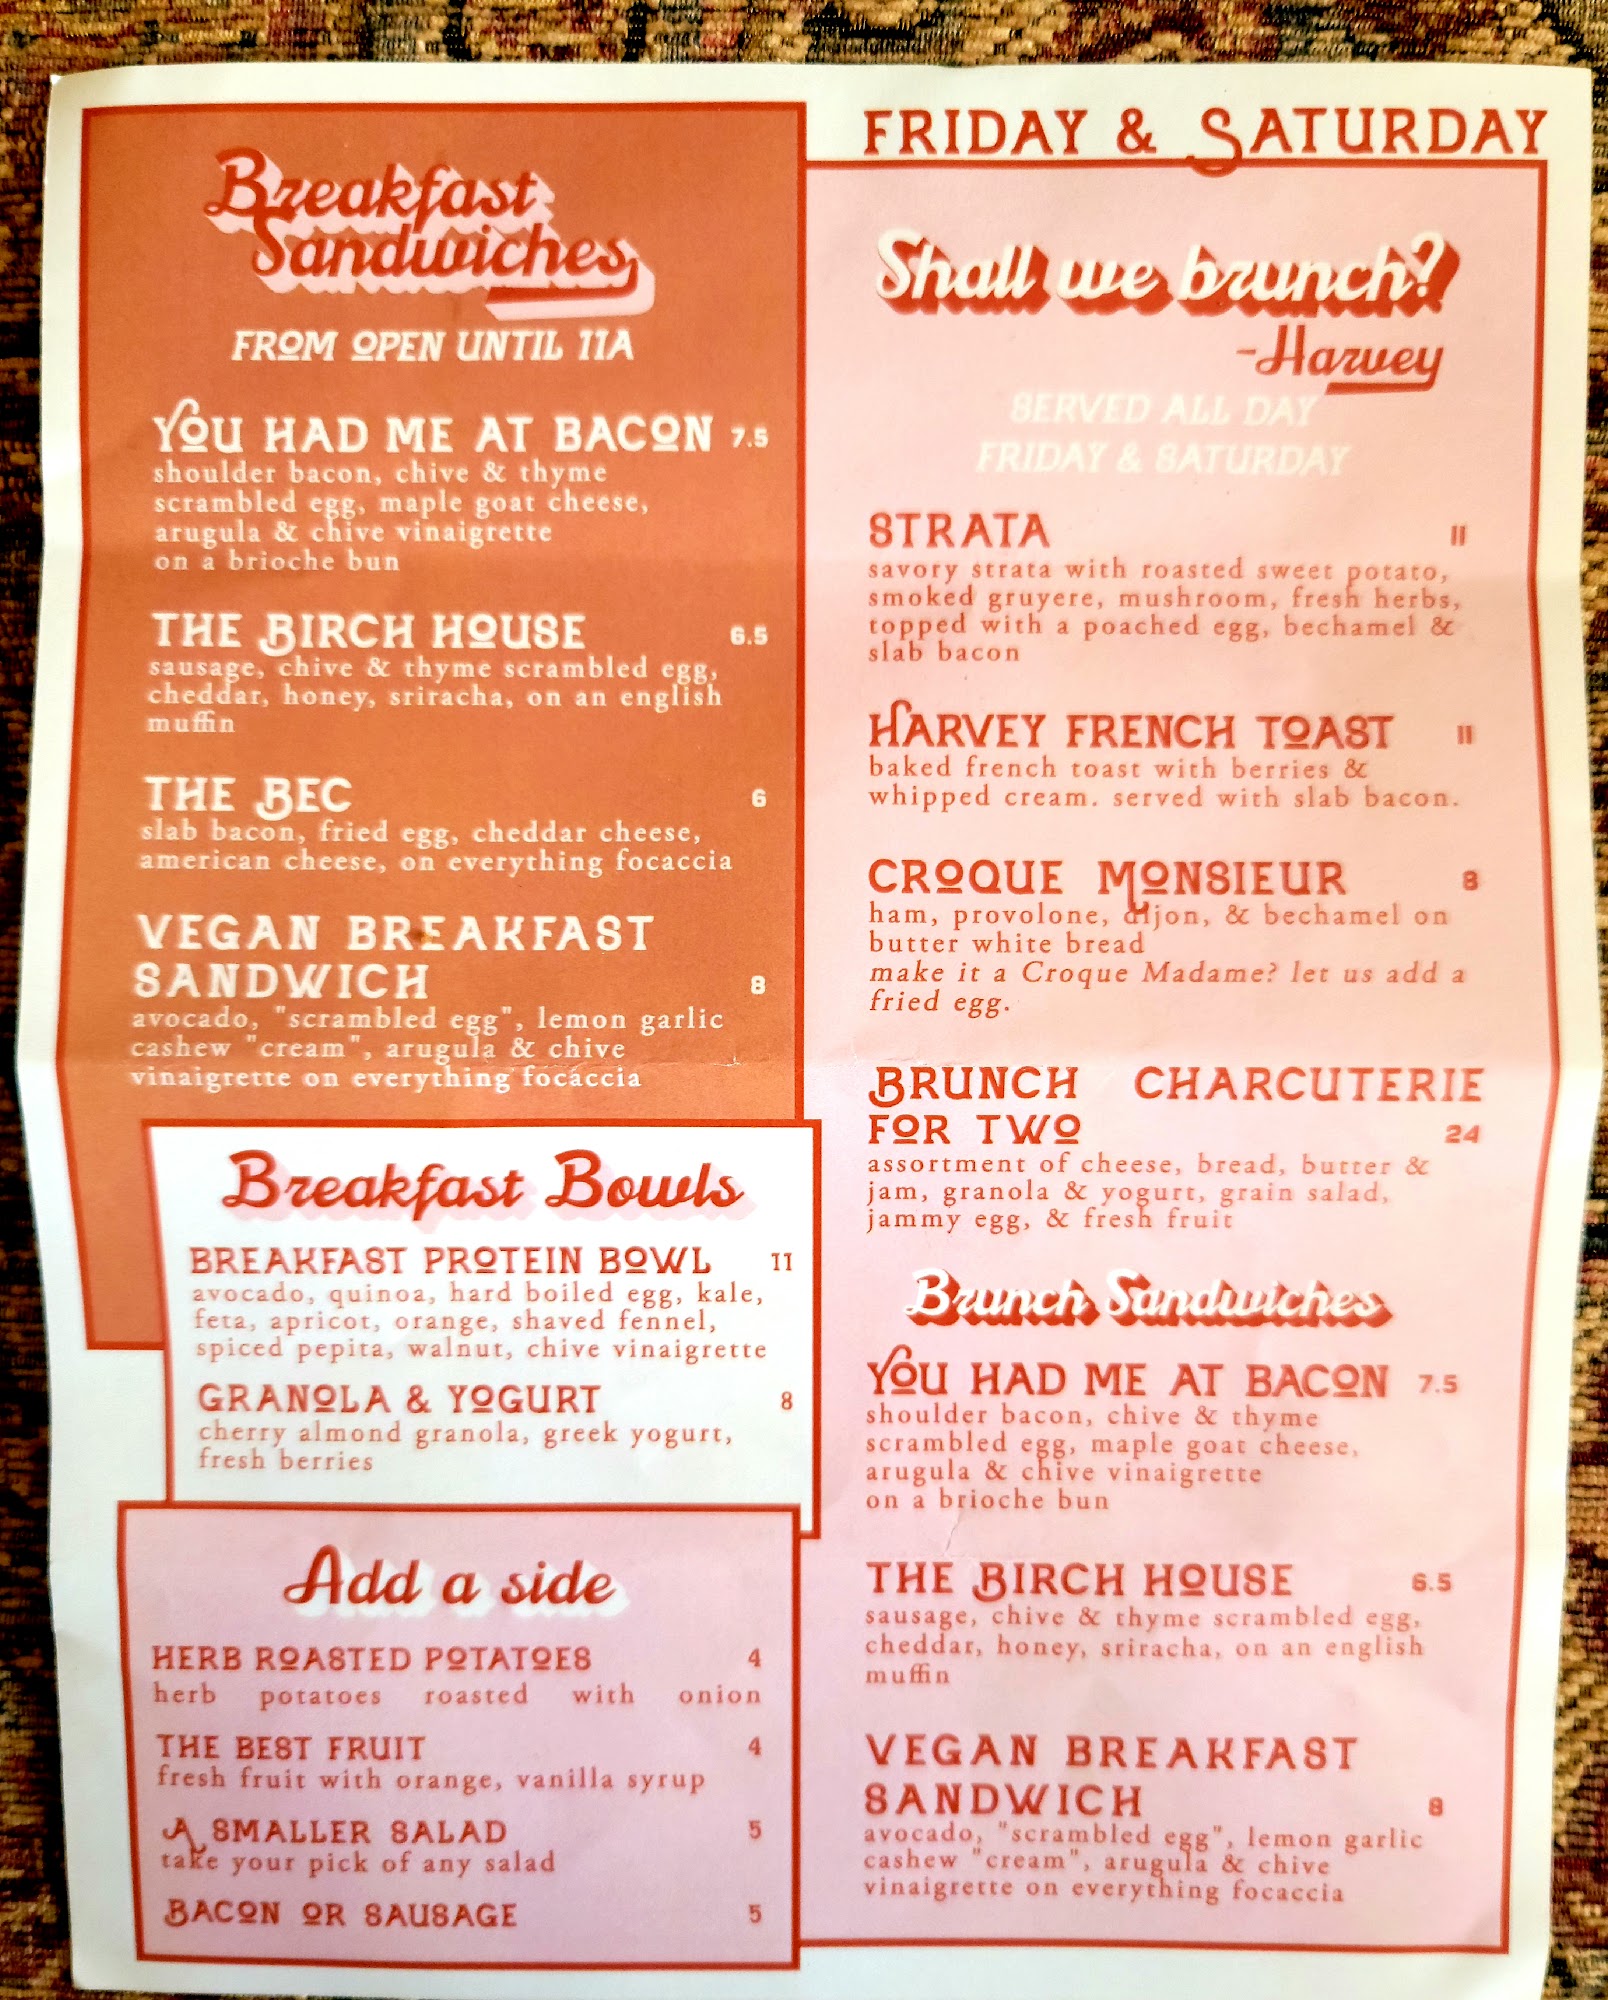 Breakfast
Sandwiches
FROM OPEN UNTIL 11A
YOU HAD ME AT BACON 7.5
shoulder bacon, chive & thyme
scrambled egg, maple goat cheese,
arugula & chive vinaigrette
on a brioche bun
THE BIRCH HOUSE 6.5
sausage, chive & thyme scrambled egg,
cheddar, honey, sriracha, on an english
muffin
THE BEC 6
slab bacon, fried egg, cheddar cheese,
american cheese, on everything focaccia
VEGAN BREAKFAST
SANDWICH 8
avocado, "scrambled egg", lemon garlic
cashew "cream", arugula & chive
vinaigrette on everything focaccia
Breakfast Bowls
BREAKFAST PROTEIN BOWL 11
avocado, quinoa, hard boiled egg, kale,
feta, apricot, orange, shaved fennel,
spiced pepita, walnut, chive vinaigrette
GRANOLA & YOGURT 8
cherry almond granola, greek yogurt,
fresh berries
Add a side
HERB ROASTED POTATOES 4
herb potatoes roasted with onion
THE BEST FRUIT 4
fresh fruit with orange, vanilla syrup
A SMALLER SALAD 5
take your pick of any salad
BACON OR SAUSAGE 5
FRIDAY & SATURDAY
Shall we brunch?
-Harvey
SERVED ALL DAY
FRIDAY & SATURDAY
STRATA 11
savory strata with roasted sweet potato,
smoked gruyere, mushroom, fresh herbs,
topped with a poached egg, bechamel &
slab bacon
HARVEY FRENCH TOAST 11
baked french toast with berries &
whipped cream. served with slab bacon.
CROQUE MONSIEUR 8
ham, provolone, dijon, & bechamel on
butter white bread
make it a Croque Madame? let us add a
fried egg.
BRUNCH CHARCUTERIE
FOR TWO 24
assortment of cheese, bread, butter &
jam, granola & yogurt, grain salad,
jammy egg, & fresh fruit
Brunch Sandwiches
YOU HAD ME AT BACON 7.5
shoulder bacon, chive & thyme
scrambled egg, maple goat cheese,
arugula & chive vinaigrette
on a brioche bun
THE BIRCH HOUSE 6.5
sausage, chive & thyme scrambled egg,
cheddar, honey, sriracha, on an english
muffin
VEGAN BREAKFAST
SANDWICH 8
avocado, "scrambled egg", lemon garlic
cashew "cream", arugula & chive
vinaigrette on everything focaccia